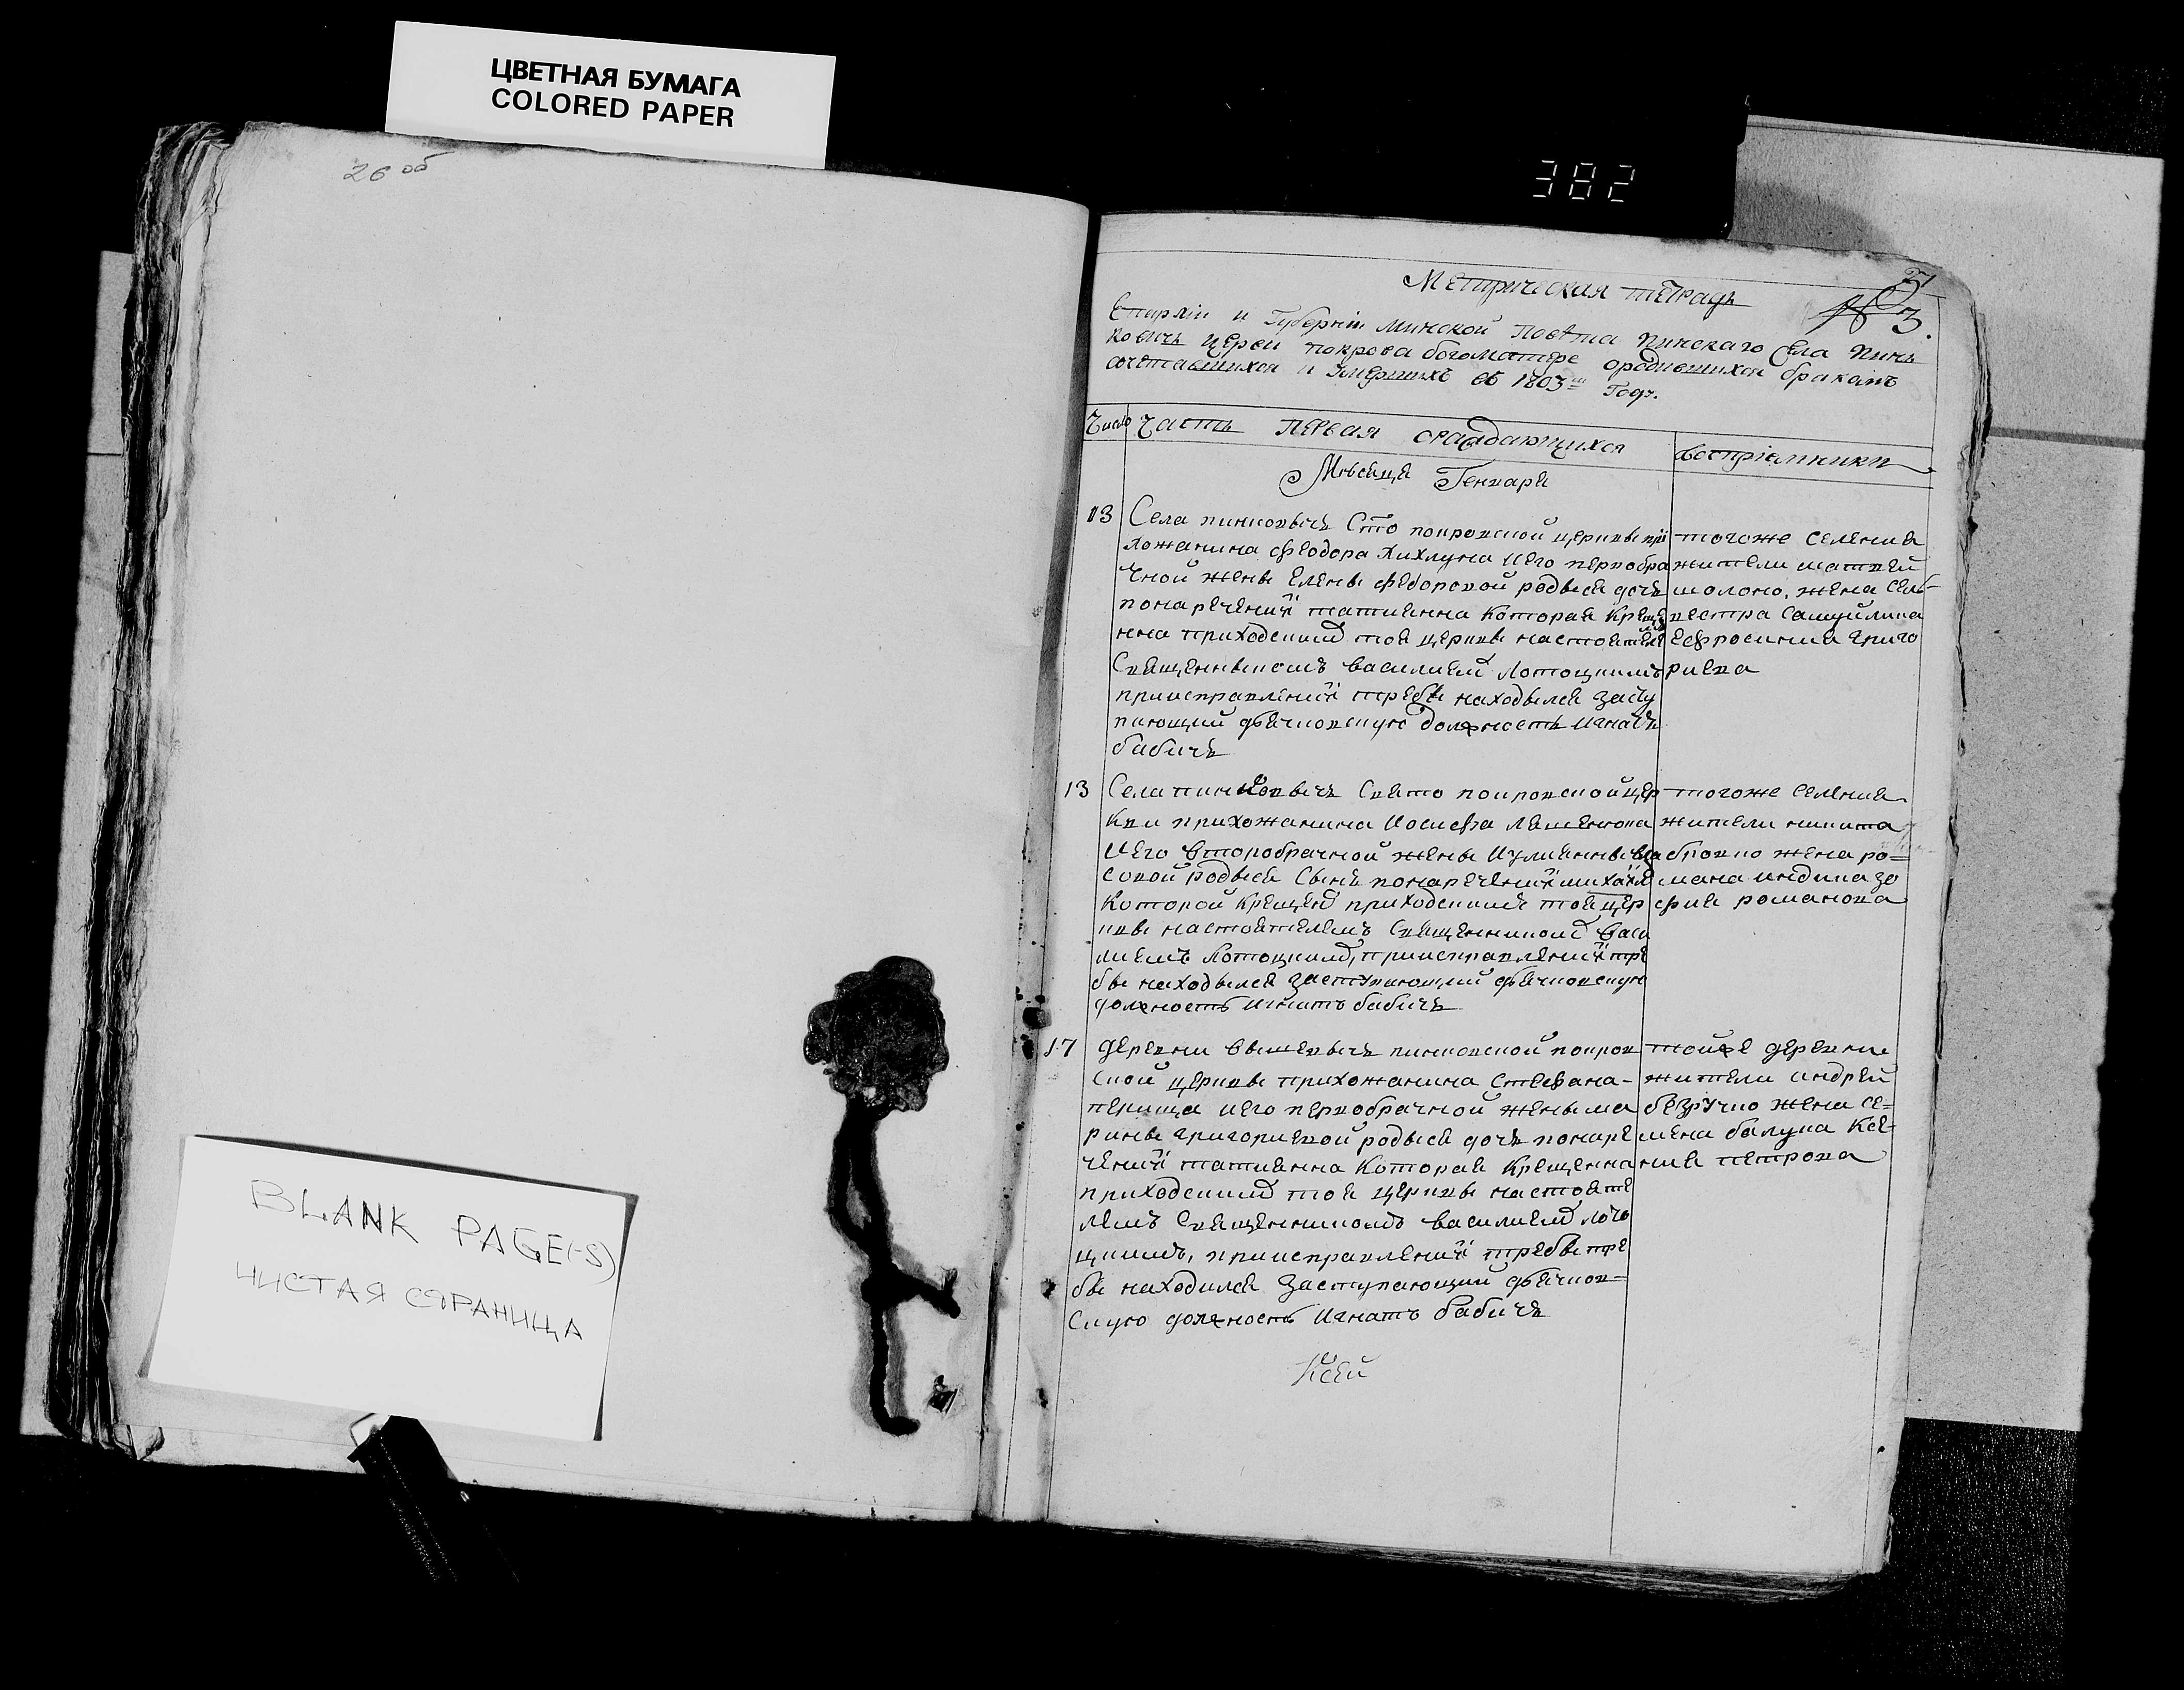 ЦВЕТНАЯ БУМАГА
COLORED PAPER
26 об
382
BLANK PAGE(-S)
ЧИСТАЯ СТРАНИЦА
27
Метрическая тетрадь
№ 3.
Епархіи и Губерніи Минской Повѣта Пинскаго Села Пинь
ковичь церкви покрова богоматере ородившихся бракомъ
сочетавшихся и Умершихъ въ 1803 Годъ.
Число
Часть первая ораждающихся
воспріемники
Мѣсяця Генваря
13
Села пинковычь Сто покровской церквы при
хожанина Феодора Хихлуна иего первобра
чной жены Елены Федоровой родыся дочь
понаречений татианна которая креще
нна приходским тоя церквы настоятеле
Священныкомъ василием Лотоцкимъ
приисправлений требы находылся засту
пающий дьячковскую должность игнатъ
бабичъ
тогоже селения
жители матвей
шоломо, жена сель
вестра самуйлика
Ефросиния григо
риева
13
Села пинковычь Свято покровской цер
кви прихожанина Иосифа
иего второбрачной жены Иулианны вла
совой родыся сынъ понаречений михаил
которой крещен приходскимъ тояцер
квы настоятелемъ священником васи
лиемъ Лотоцким, приисправлений тре
бы находылся заступающий дьячковскую
должность игнатъ бабичъ
тогоже селения
жители никита
бровко жена ро=
мана индика зо
фия романова
17
деревни вышевычь пинковской покров
ской церквы прихожанина Стефана-
иего первобрачной жены ма
рины григориевой родыся дочь понаре
чений татианна которая крещенна
приходским тоя церквы настояте
лемъ священникомъ василием лото
цкимъ, приисправлений требы тре
бы находился заступающий дьячков=
скую должность Игнатъ бабичъ
тойже деревни
жители андрей
безручко жена се=
мена балука ксе-
ния петрова